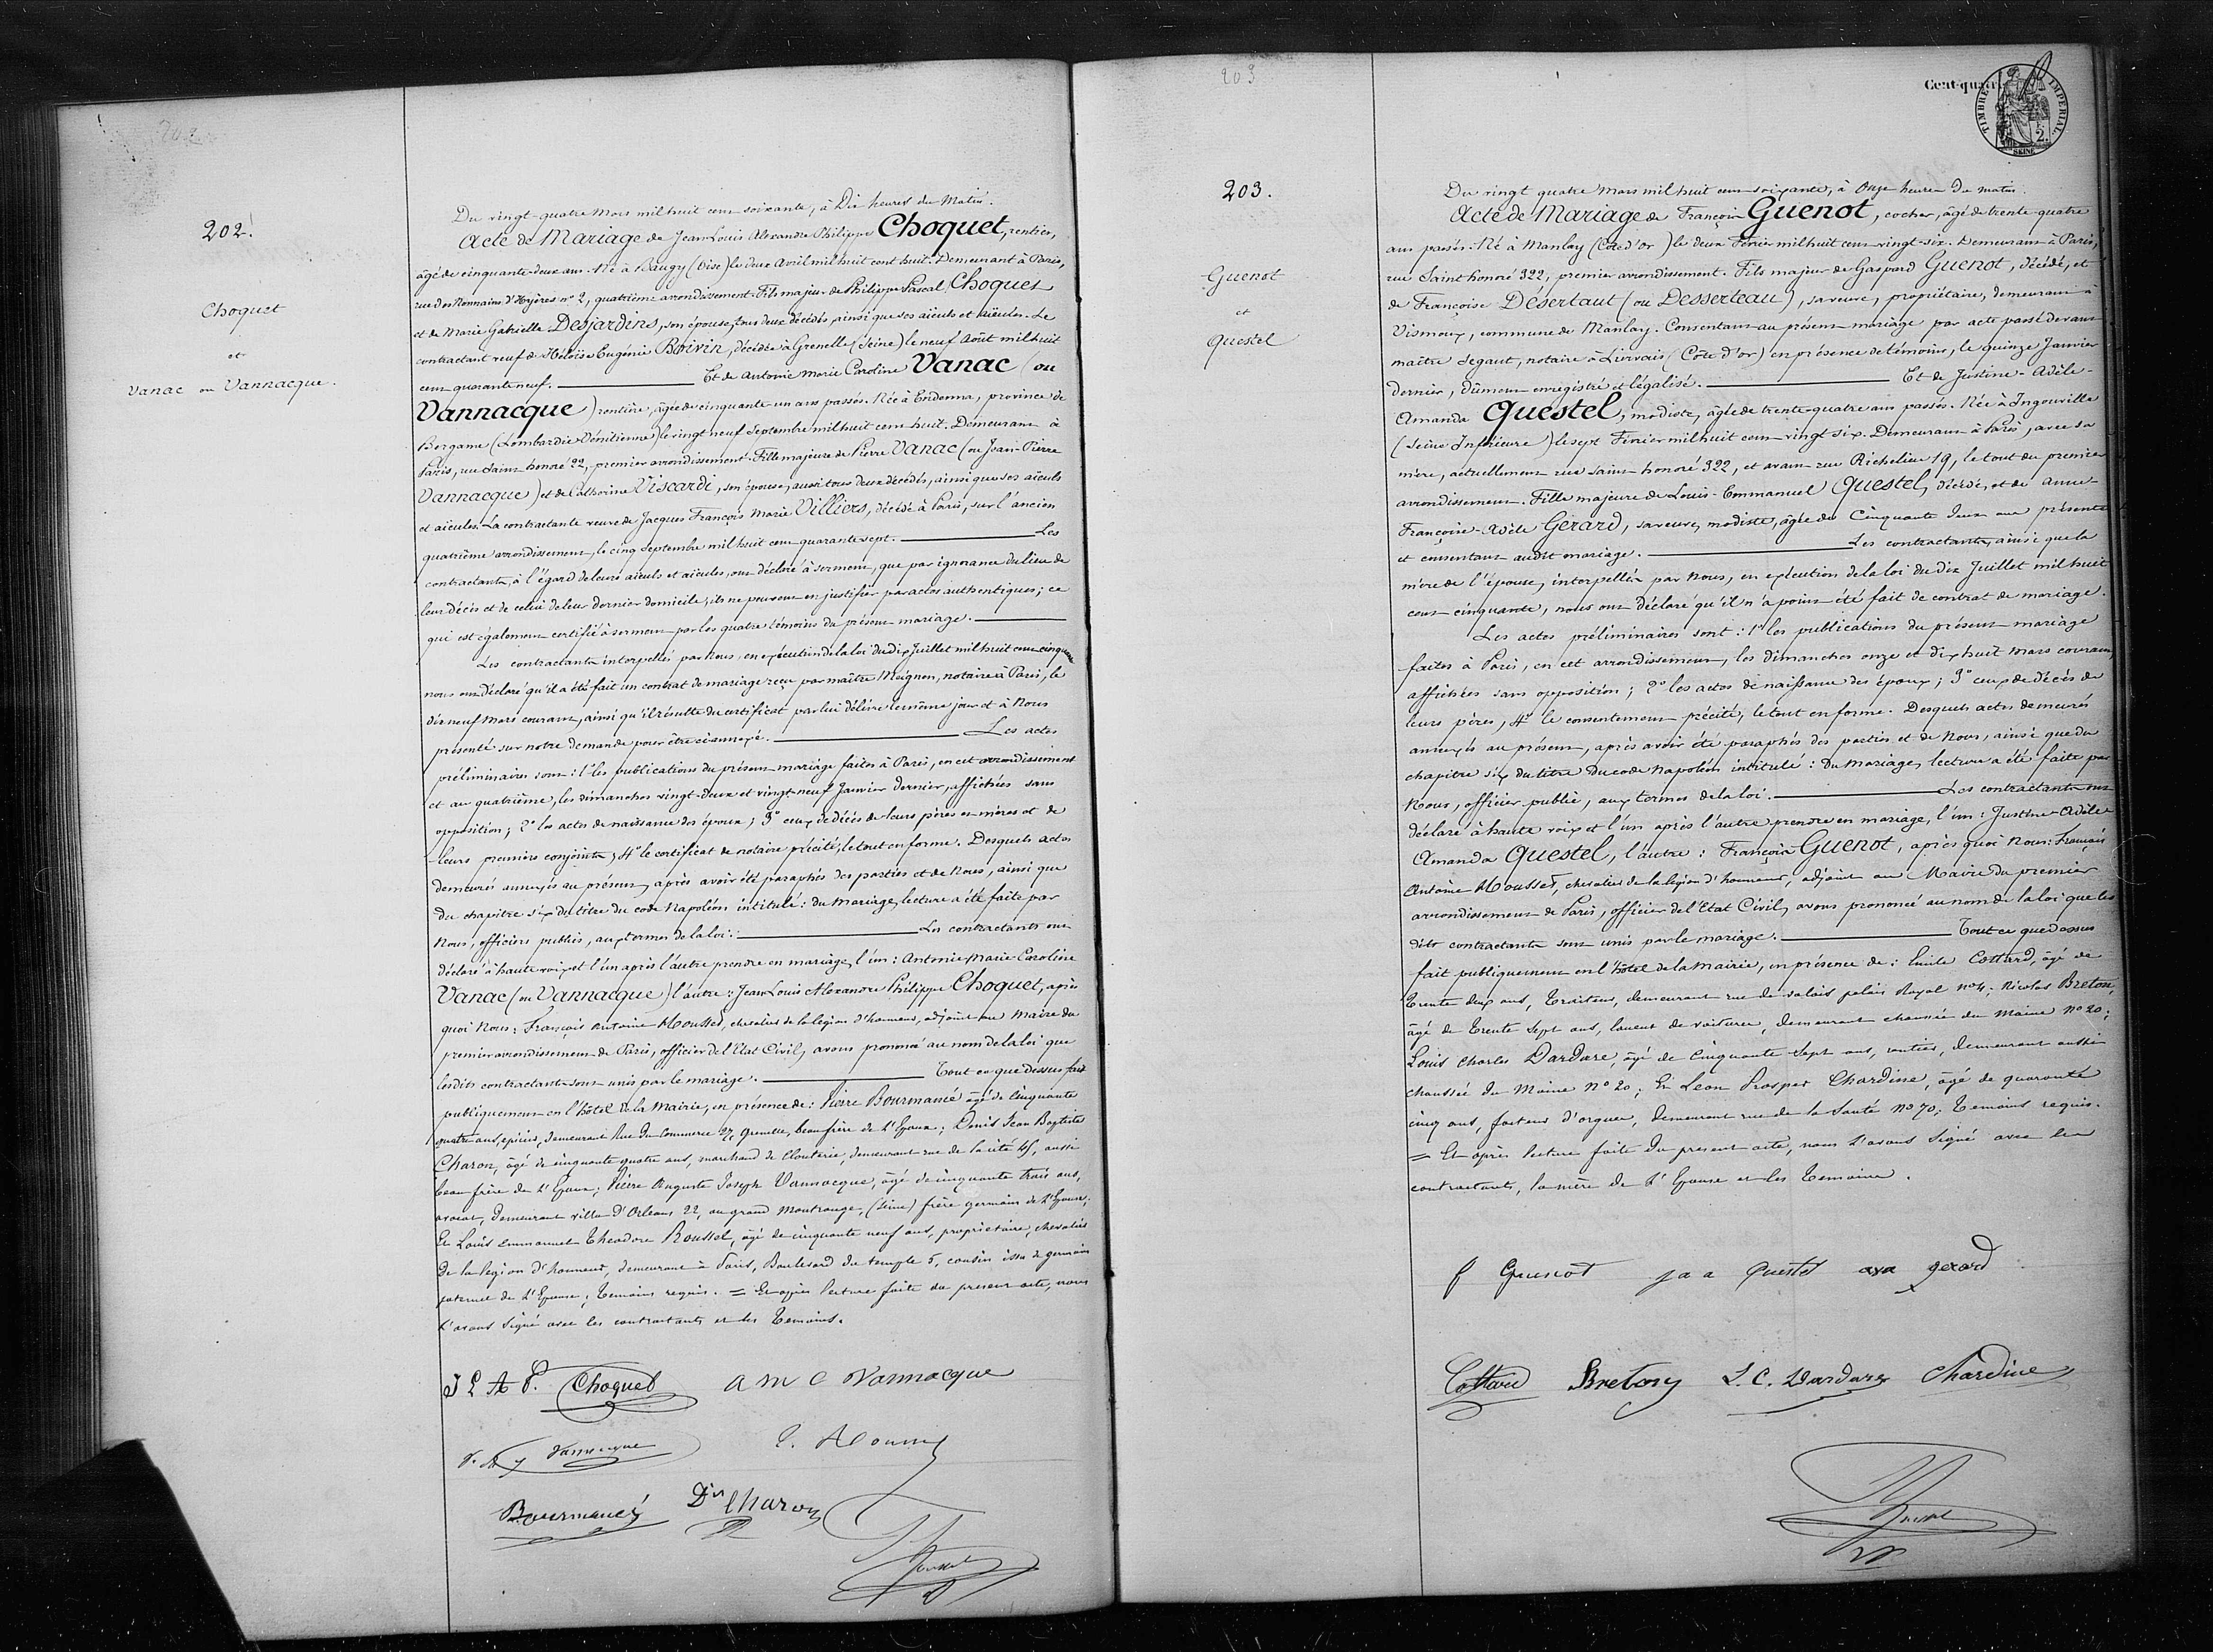 202
202.
Choquet
et
Vanac ou Vannacque.
Du vingt-quatre Mars mil huit cent soixante, à Dix heures du Matin.
Acte de Mariage de Jean Louis Alexandre Philippe Choquet, rentier,
âgé de cinquante-deux ans. Né à Baugy (Oise) le deux Avril mil huit cent huit. Demeurant à Paris,
rue des Nonnains d'Hyères n° 2, quatrième arrondissement. Fils majeur de Philippe Pascal Choquet
et de Marie Gabrielle Desjardins, son épouse, tous deux décédés, ainsi que ses aïeuls et aïeules. Le
contractant veuf de Héloïse Eugénie Boivin, décédée à Grenelle (Seine) le neuf Août mil huit
cent quarante neuf. Et de Antonie Marie Caroline Vanac (ou
Vannacque) rentière, âgée de cinquante-un ans passés. Née à Endenna, province de
Bergame (Lombardie Vénitienne) le vingt neuf Septembre mil huit cent huit. Demeurant à
Paris, rue Saint honoré 22, premier arrondissement. Fille majeure de Pierre Vanac (ou Jean-Pierre
Vannacque) et de Catherine Viscardi, son épouse, aussi tous deux décédés, ainsi que ses aïeuls
et aïeules. La contractante veuve de Jacques François Marie Villiers, décédé à Paris, sur l'ancien
quatrième arrondissement, le cinq Septembre mil huit cent quarante sept. Les
contractants, à l'égard de leurs aïeuls et aïeules, ont déclaré à serment, que par ignorance du lieu de
leur décès et de celui de leur dernier domicile, ils ne peuvent en justifier par actes authentiques; ce
qui est également certifié à serment par les quatre témoins du présent mariage.
Les contractants interpellés par Nous, en exécution de la loi du dix Juillet mil huit cent cinquante
nous ont déclaré qu'il a été fait un contrat de mariage reçu par maître Meignen, notaire à Paris, le
dix neuf Mars courant, ainsi qu'il résulte du certificat par lui délivré le même jour et à Nous
présenté sur notre demande pour être ci annexé. Les actes
préliminaires sont: 1° les publications du présent mariage faites à Paris, en cet arrondissement
et au quatrième, les dimanches vingt-deux et vingt-neuf Janvier dernier, affichées sans
opposition; 2° les actes de naissance des époux; 3° ceux de décès de leurs pères et mères et de
leurs premiers conjoints; 4° le certificat de notaire précité, le tout en forme. Desquels actes
demeurés annexés au présent, après avoir été paraphés des parties et de Nous, ainsi que
du chapitre six du titre du code Napoléon intitulé: du Mariage, lecture a été faite par
Nous, officiers publics, aux termes de la loi. Les contractants ont
déclaré à haute voix et l'un après l'autre prendre en mariage, l'un: Antonie Marie Caroline
Vanac (ou Vannacque) l'autre: Jean Louis Alexandre Philippe Choquet, après
quoi Nous: François Antoine Mousset, chevalier de la légion d'honneur, adjoint au Maire du
premier arrondissement de Paris, officier de l'Etat Civil, avons prononcé au nom de la loi que
lesdits contractants sont unis par le mariage. Tout ce que dessus fait
publiquement en l'hôtel de la Mairie, en présence de: Pierre Bourmancé âgé de cinquante
quatre ans, épicier, demeurant Rue du Commerce 27, Grenelle, beau frère de l'Epoux; Denis Jean Baptiste
Charon, âgé de cinquante quatre ans, marchand de clouterie, demeurant rue de la cité 45, aussi
beau frère de l'Epoux; Pierre Auguste Joseph Vannacque, âgé de cinquante trois ans,
avocat, demeurant villa d'Orleans 22, au grand Montrouge, (Seine) frère germain de l'Epouse;
Et Louis Emmanuel Theodore Roussel, âgé de cinquante neuf ans, propriétaire, chevalier
de la légion d'honneur, demeurant à Paris, Boulevard du temple 5, cousin issu de germain
paternel de l'Epouse; témoins requis. = Et après lecture faite du présent acte, nous
l'avons signé avec les contractants et les témoins.
J L A P. Choquet a m c Vannacque
Vannacque
Bourmancé Dis Charon
203
Cent-quatre
TIMBRE IMPERIAL
2.
SEINE
203.
Guenot
et
Questel
Du vingt quatre Mars mil huit cent soixante, à Onze heures du matin.
Acte de Mariage de François Guenot, cocher, âgé de trente-quatre
ans passés. Né à Manlay (Côte d'or) le deux Février mil huit cent vingt-six. Demeurant à Paris,
rue Saint honoré 322, premier arrondissement. Fils majeur de Gaspard Guenot, décédé, et
de Françoise Desertaut (ou Desserteau), sa veuve, propriétaire, demeurant à
Vismoux, commune de Manlay. Consentant au présent mariage par acte passé devant
maître Segaut, notaire à Livrais (Côte d'or) en présence de témoins, le quinze Janvier
dernier, dûment enregistré et légalisé. Et de Justine-Adèle-
Amanda Questel, modiste, âgée de trente-quatre ans passés. Née à Ingouville
(Seine Inférieure) le sept Février mil huit cent vingt six. Demeurant à Paris, avec sa
mère, actuellement rue Saint honoré 322, et avant rue Richelieu 19, le tout du premier
arrondissement. Fille majeure de Louis-Emmanuel Questel, décédé, et de Anne-
Françoise-Adèle Gérard, sa veuve, modiste, âgée de Cinquante deux ans présente
et consentant audit mariage. Les contractants, ainsi que la
mère de l'épouse, interpellés par Nous, en exécution de la loi du dix Juillet mil huit
cent cinquante, nous ont déclaré qu'il n'a point été fait de contrat de mariage.
Les actes préliminaires sont: 1° les publications du présent mariage
faites à Paris, en cet arrondissement, les dimanches onze et dix huit mars courant,
affichées sans opposition; 2° les actes de naissance des époux; 3° ceux de décès de
leurs pères; 4° le consentement précité, le tout en forme. Desquels actes demeurés
annexés au présent, après avoir été paraphés des parties et de Nous, ainsi que du
chapitre six du titre du code Napoléon intitulé: du Mariage, lecture a été faite par
Nous, officier public, aux termes de la loi. Les contractants ont
déclaré à haute voix et l'un après l'autre prendre en mariage, l'un: Justine-Adèle-
Amanda Questel, l'autre: François Guenot, après quoi Nous: François
Antoine Mousset, chevalier de la légion d'honneur, adjoint au Maire du premier
arrondissement de Paris, officier de l'Etat Civil, avons prononcé au nom de la loi que les
dits contractants sont unis par le mariage. Tout ce que dessus
fait publiquement en l'hôtel de la Mairie, en présence de: Emile Cottard, âgé de
trente deux ans, traiteur, demeurant rue de valois palais Royal n° 4; Nicolas Breton,
âgé de trente sept ans, loueur de voitures, demeurant chaussée du Maine n° 20;
Louis Charles Dardare, âgé de cinquante sept ans, rentier, demeurant aussi
chaussée du Maine n° 20; Et Leon Prosper Chardine, âgé de quarante
cinq ans, facteur d'orgues, demeurant rue de la Santé n° 70; témoins requis.
= Et après lecture faite du present acte, nous l'avons signé avec les
contractants, la mère de l'Epouse et les temoins.
f Guenot j a a Questel gerard
Cottard Breton L. C. Dardare Chardine